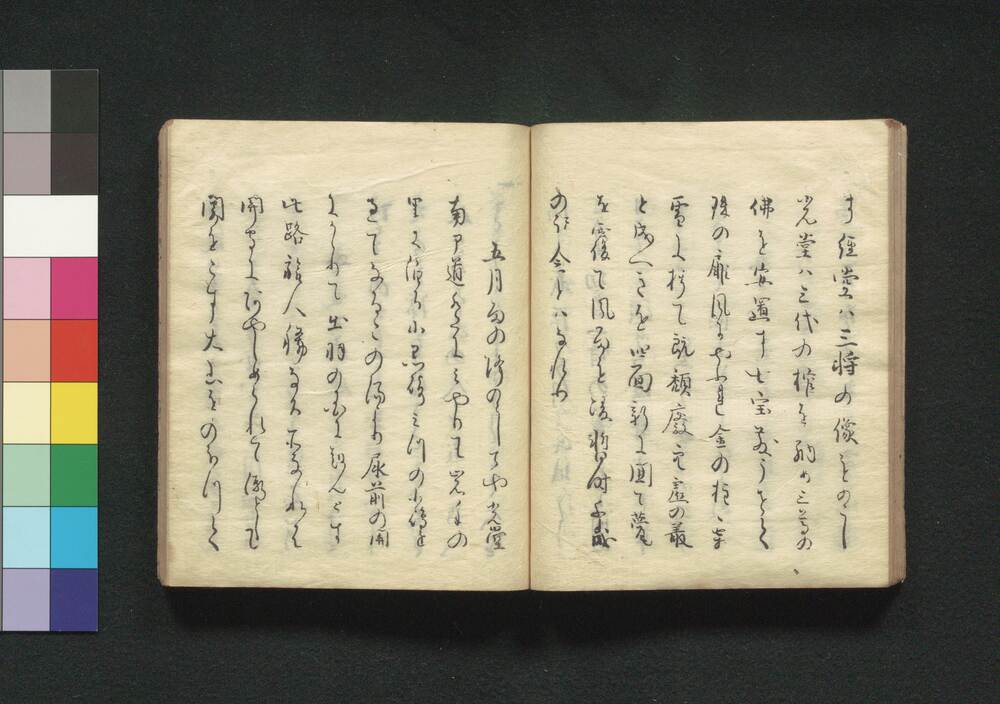 す経堂ハ三将の像をのこし
光堂ハ三代の棺を納め三尊の
佛を安置す七宝散うせて
珠の扉風にやふれ金の柱霜
雪に朽て既頽廃空虚の叢
と成へきを四面新に圍て甍
を覆て風雨を凌暫時千歳
の記念とハなれり
五月雨の降のこしてや光堂
南部道遥にみやりて岩手の
里に泊る小黒崎みつの小嶋を
過てなるこの湯より尿前の関
にかゝりて出羽の国に越んとす
此路旅人稀なる所なれは
関守にあやしめられて漸として
関をこす大山をのほつて